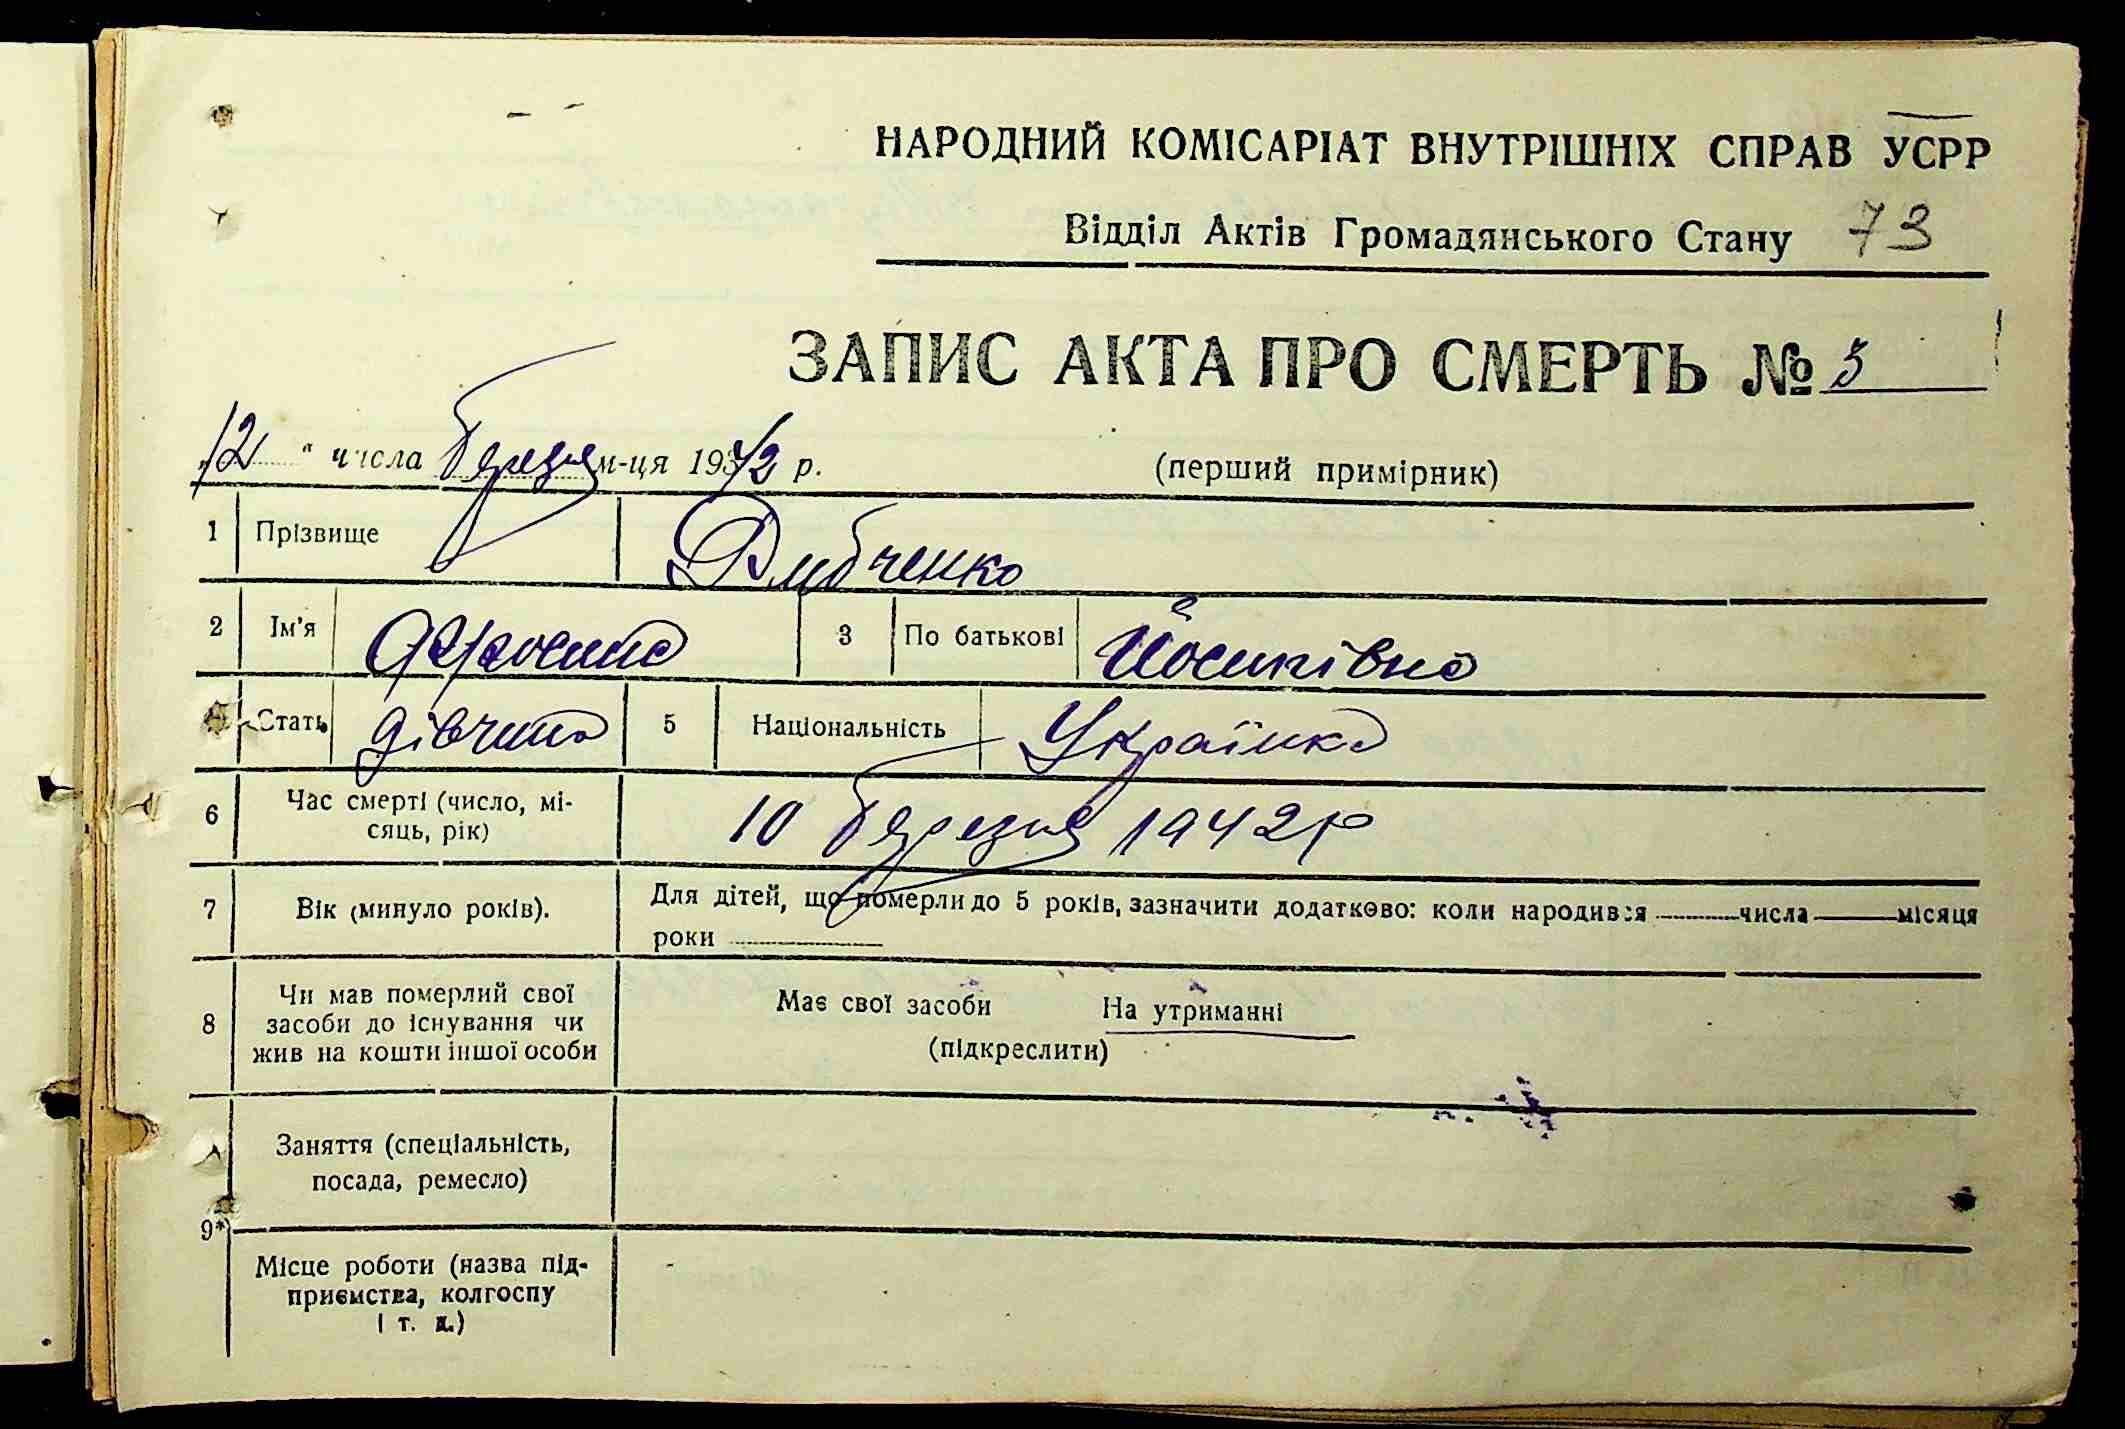 НАРОДНИЙ КОМІСАРІАТ ВНУТРІШНІХ СПРАВ УСРР
Відділ Актів Громадянського Стану 73
ЗАПИС АКТА ПРО СМЕРТЬ № 5
„12 " числа березня м-ця 1942 р. (перший примірник)
1 Прізвище Дибченко
2 Ім'я 3 По батькові Йосипівна
Стать дівчина 5 Національність Українка
6 Час смерті (число, мі-
сяць, рік) 10 березня 1942 р
7 Вік (минуло років). Для дітей, що померли до 5 років, зазначити додатково: коли народився числа місяця
роки
8 Чи мав померлий свої
засоби до існування чи
жив на кошти іншої особи
Має свої засоби На утриманні
(підкреслити)
Заняття (спеціальність,
посада, ремесло)
9*)
Місце роботи (назва під-
приємства, колгоспу
і т. д.)